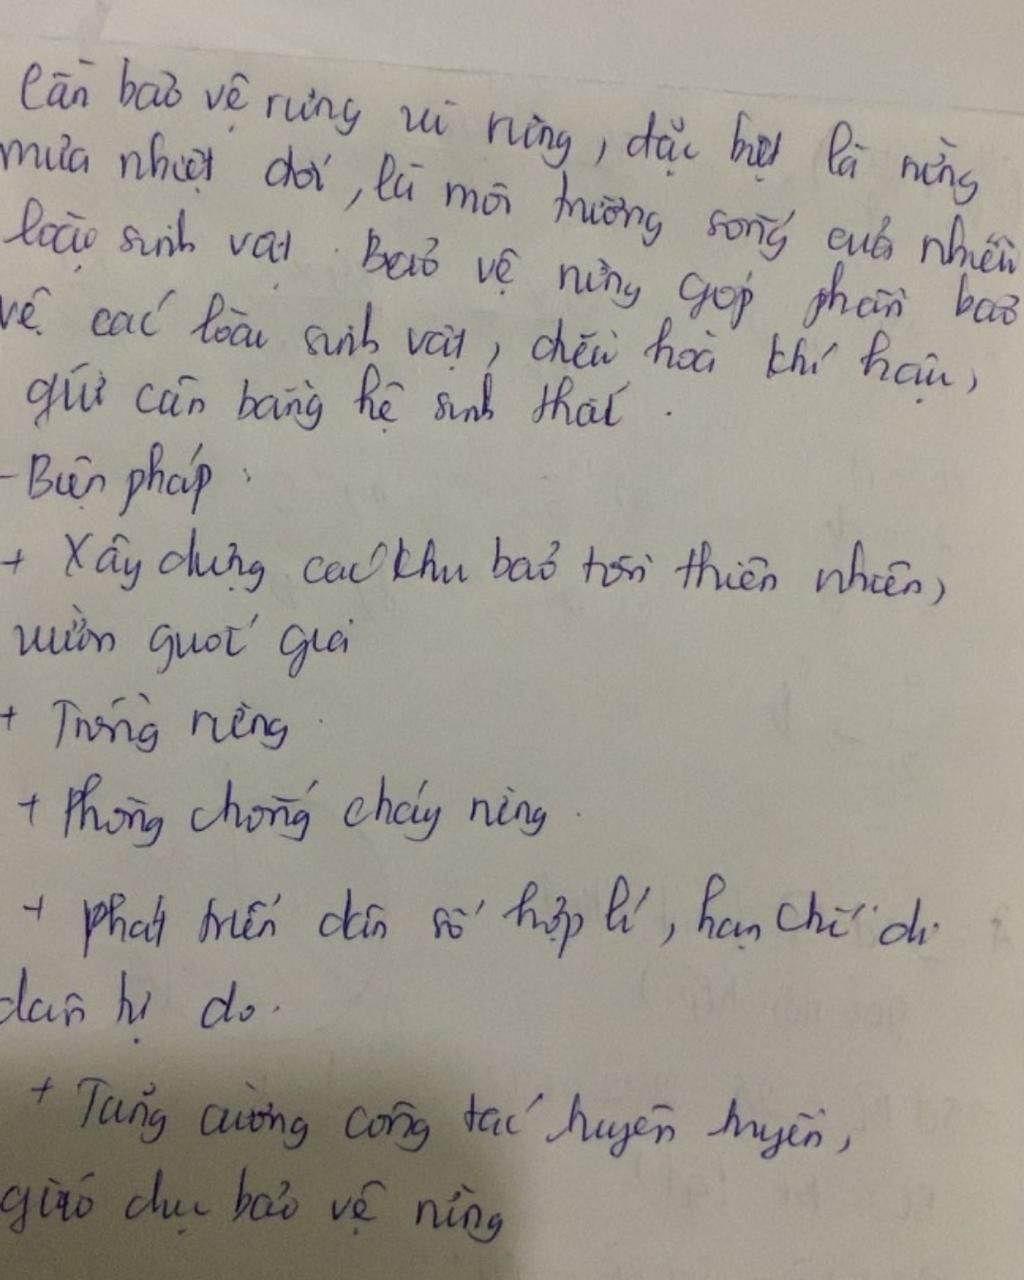 Cần bảo vệ rừng vì rừng, đặc biệt là rừng
mưa nhiệt đới, là môi trường sống của nhiều
loài sinh vật. Bảo vệ rừng góp phần bảo
vệ các loài sinh vật, điều hoà khí hậu,
giữ cân bằng hệ sinh thái.
- Biện pháp:
+ Xây dựng các khu bảo tồn thiên nhiên,
vườn quốc gia
+ Trồng rừng
+ Phòng chống cháy rừng.
+ phát triển dân số hợp lí, hạn chế di
dân tự do.
+ Tăng cường công tác tuyên truyền,
giáo dục bảo vệ rừng